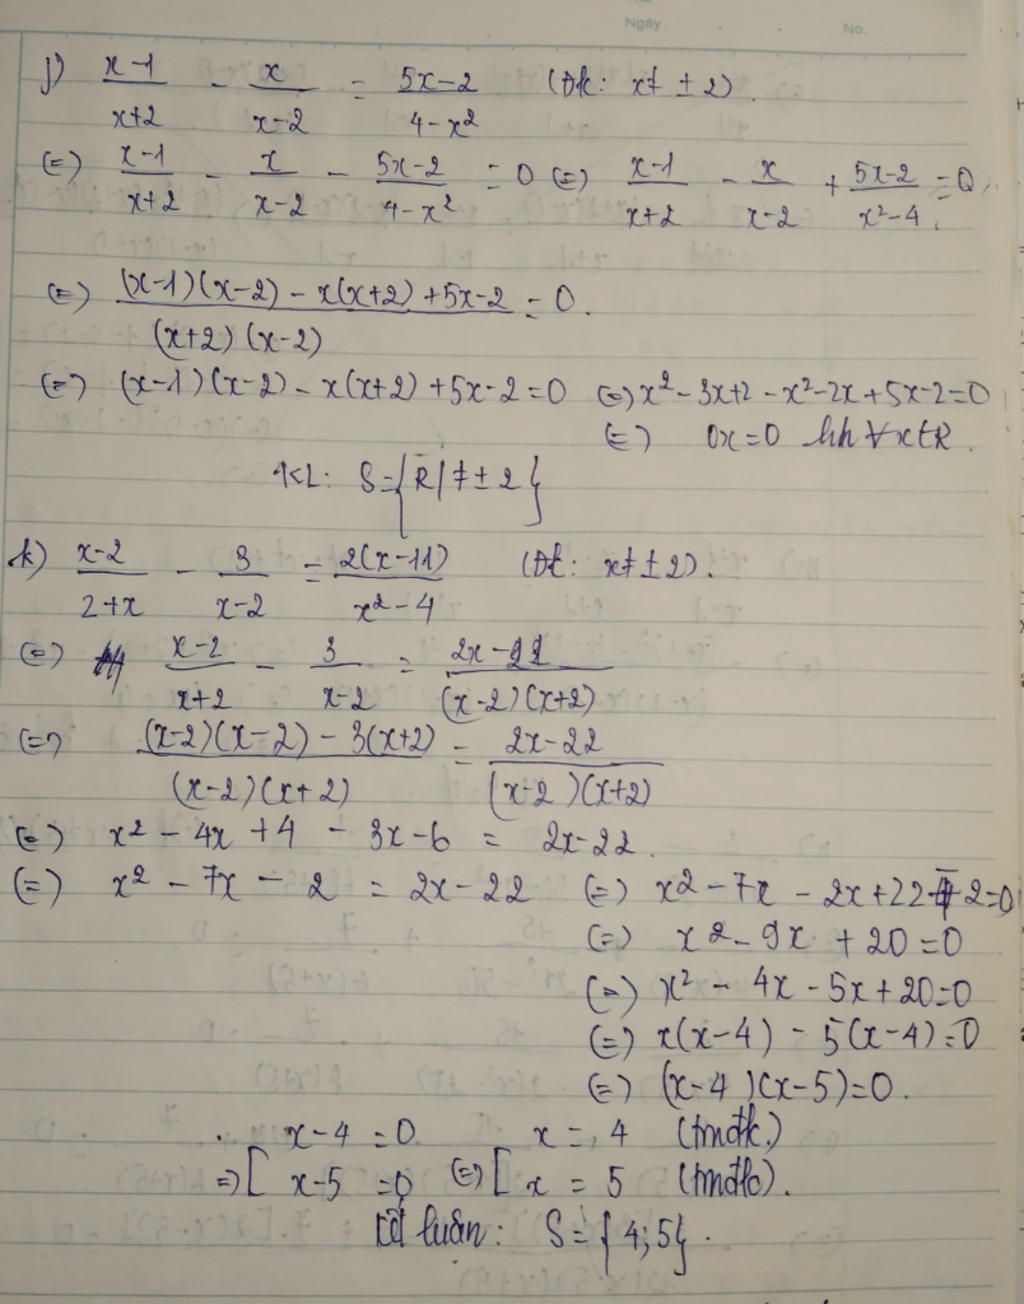 Ngày No.
j) \frac{x-1}{x+2} - \frac{x}{x-2} = \frac{5x-2}{4-x²} (Đk: x≠ ±2).
(=) \frac{x-1}{x+2} - \frac{x}{x-2} - \frac{5x-2}{4-x²} = 0 (=) \frac{x-1}{x+2} - \frac{x}{x-2} + \frac{5x-2}{x²-4} = 0
(=) \frac{(x-1)(x-2) - x(x+2) + 5x-2}{(x+2)(x-2)} = 0.
(=) (x-1)(x-2) - x(x+2) + 5x-2 = 0 (=) x² - 3x+2 - x² - 2x + 5x - 2 = 0
(=) 0x = 0 ∀x∈R.
KL: S = {R | ≠ ±2}
k) \frac{x-2}{2+x} - \frac{3}{x-2} = \frac{2(x-11)}{x²-4} (Đk: x≠ ±2).
(=) \frac{x-2}{x+2} - \frac{3}{x-2} = \frac{2x-22}{(x-2)(x+2)}
(=) \frac{(x-2)(x-2) - 3(x+2)}{(x-2)(x+2)} = \frac{2x-22}{(x-2)(x+2)}
(=) x² - 4x + 4 - 3x - 6 = 2x - 22.
(=) x² - 7x - 2 = 2x - 22 (=) x² - 7x - 2x + 22 - 2 = 0
(=) x² - 9x + 20 = 0
(=) x² - 4x - 5x + 20 = 0
(=) x(x-4) - 5(x-4) = 0
(=) (x-4)(x-5) = 0.
x-4 = 0 x = 4 (tmđk)
=) [ x-5 = 0 (=) [ x = 5 (tmđk).
Kết luận: S = {4; 5}.